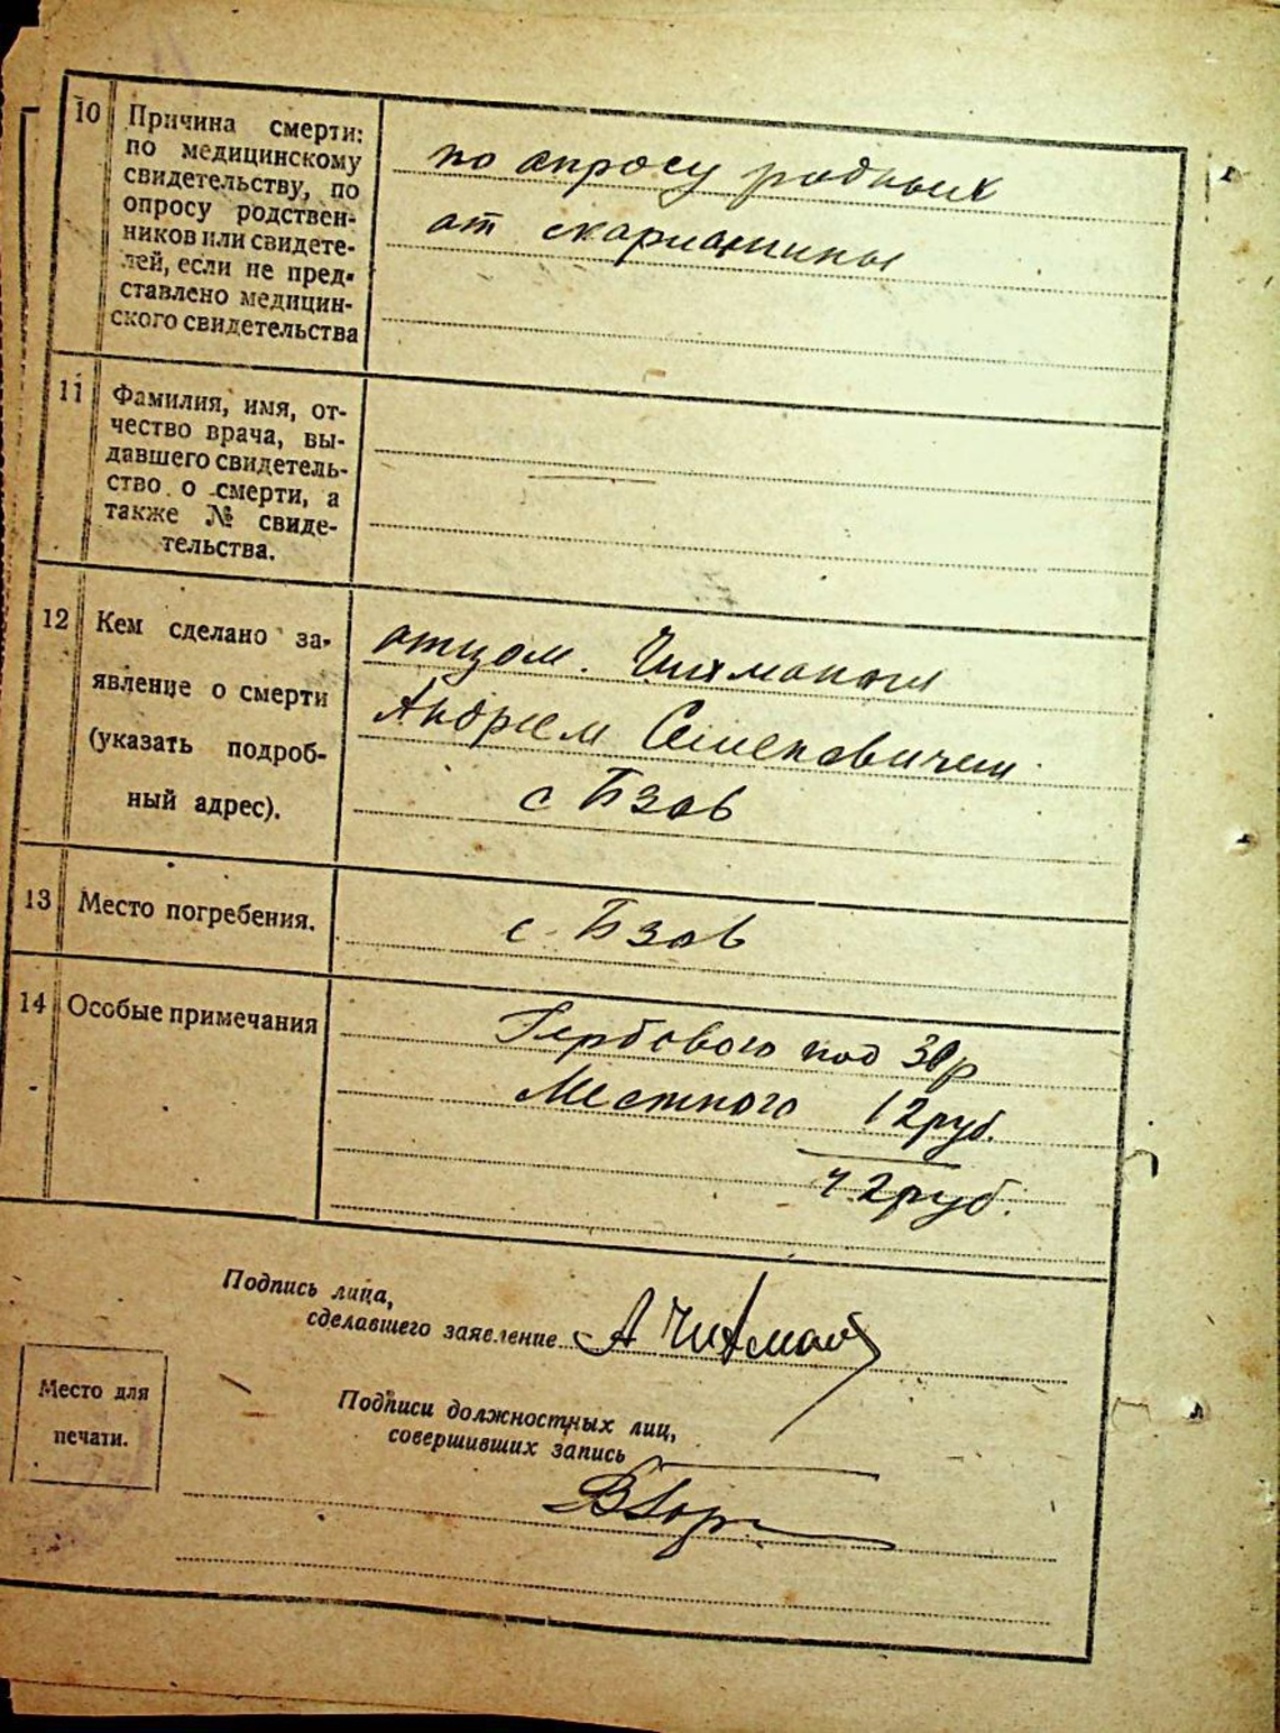 10 Причина смерти:
по медицинскому
свидетельству, по
опросу родствен-
ников или свидете-
лей, если не пред-
ставлено медицин-
ского свидетельства
по опросу родных
от скарлатины
11 Фамилия, имя, от-
чество врача, вы-
давшего свидетель-
ство о смерти, а
также № свиде-
тельства.
12 Кем сделано за-
явление о смерти
(указать подроб-
ный адрес).
отцом.
Андреем Семеновичем
с Бзов
13 Место погребения.
с. Бзов
14 Особые примечания
Гербового под 30р
Местного 12руб.
42руб.
Подпись лица,
сделавшего заявление
Место для
печати.
Подписи должностных лиц,
совершивших запись